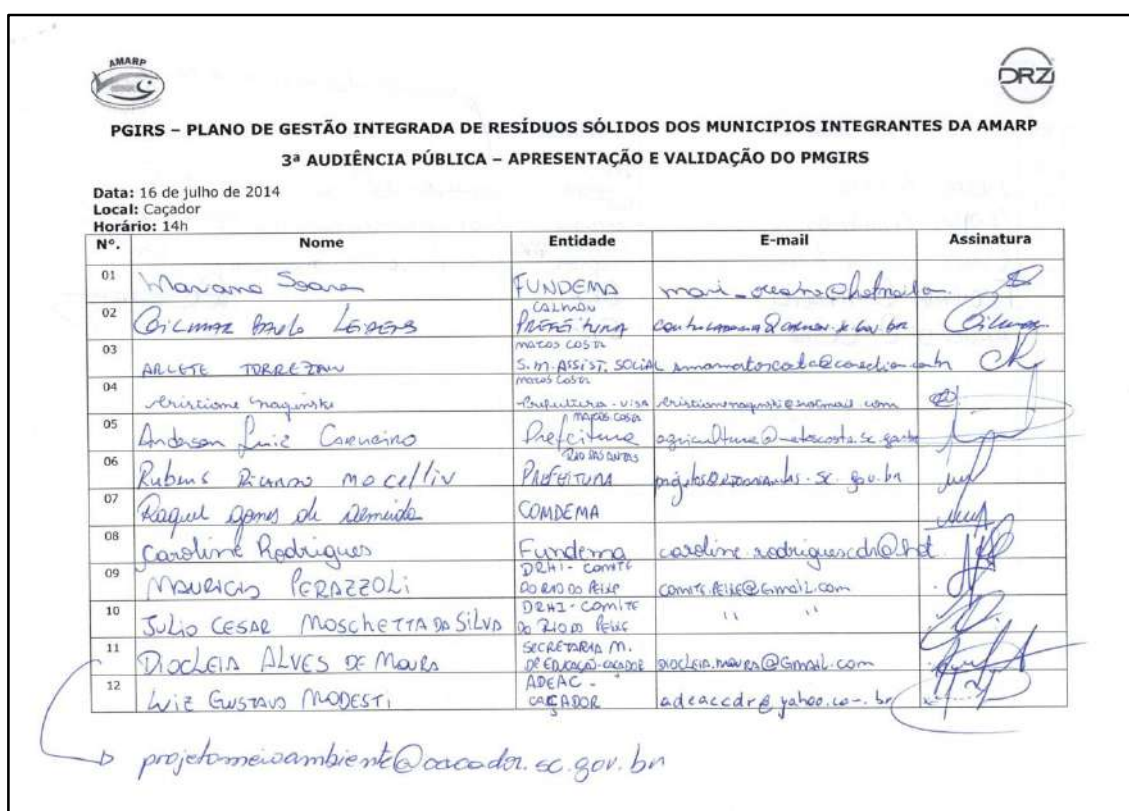 AMARP
DRZ
PGIRS – PLANO DE GESTÃO INTEGRADA DE RESÍDUOS SÓLIDOS DOS MUNICIPIOS INTEGRANTES DA AMARP
3ª AUDIÊNCIA PÚBLICA – APRESENTAÇÃO E VALIDAÇÃO DO PMGIRS
Data: 16 de julho de 2014
Local: Caçador
Horário: 14h
Nº. Nome Entidade E-mail Assinatura
01 Mariana Soares FUNDEMA
02 Paulo CALMON PREFEITURA
03 ARLETE TORREZAN MATOS COSTA S.M. ASSIST. SOCIAL
04 MATOS COSTA Prefeitura - VISA
05 Anderson Luiz Carneiro MATOS COSTA Prefeitura
06 Rubens Ricardo RIO DAS ANTAS PREFEITURA
07 Raquel Gomes de Almeida COMDEMA
08 Caroline Rodrigues Fundema caroline.rodriguescdr@hot
09 MAURICIO PERAZZOLI DRHI - COMITÊ DO RIO DO PEIXE COMITE.PEIXE@Gmail.com
10 JULIO CESAR MOSCHETTA DA SILVA DRHI - COMITÊ DO RIO DO PEIXE " "
11 DIOCLEIA ALVES DE MOURA SECRETARIA M. DE EDUCAÇÃO - CAÇADOR DIOCLEIA.MOURA@Gmail.com
12 LUIZ GUSTAVO MODESTI ADEAC - CAÇADOR adeaccdr@yahoo.co-.br
projetomeioambiente@cacador.sc.gov.br